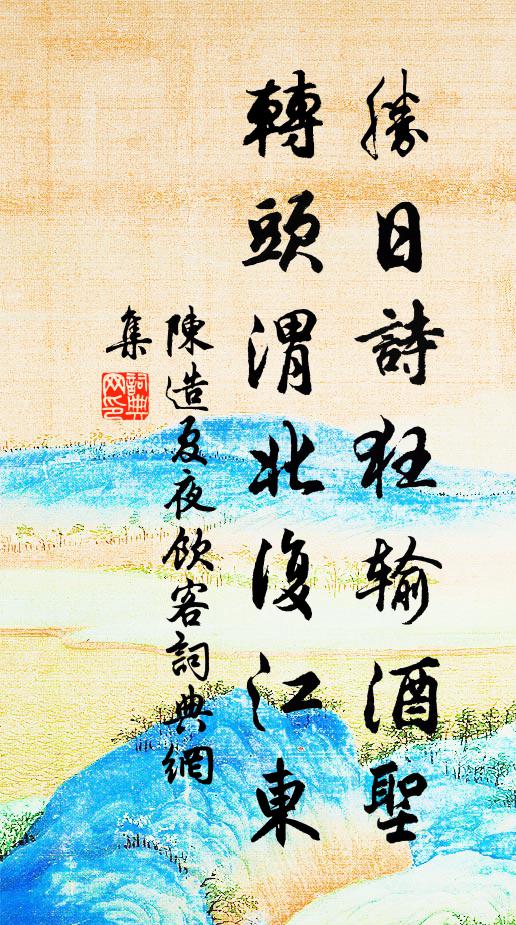 勝日詩狂输酒聖
轉頭渭北復江東
陳造夏夜飲客詞典網
集
詞典
网印